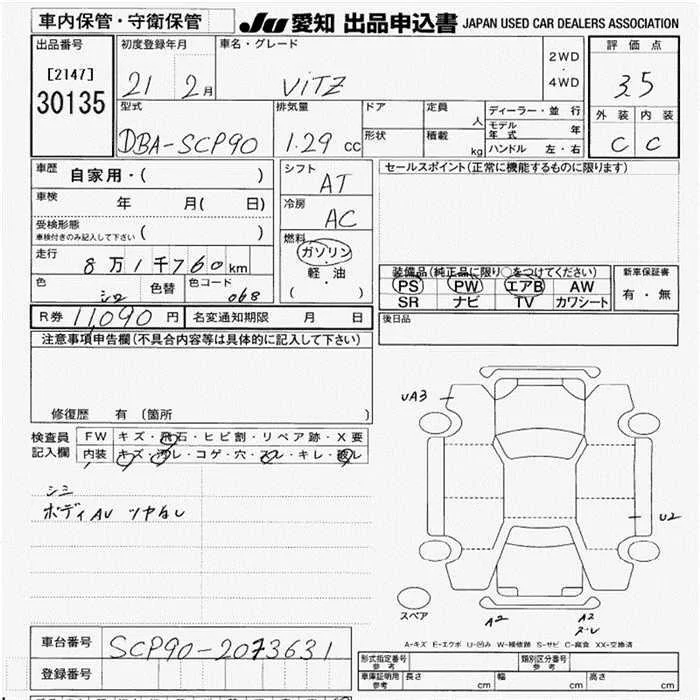 車内保管・守衛保管 JU 愛知 出品申込書 JAPAN USED CAR DEALERS ASSOCIATION
出品番号 初度登録年月 車名・グレード 2WD・4WD 評価点
[2147] 30135 21 2月 VITZ 3.5
型式 排気量 ドア 定員 人 ディーラー・並行 外装 内装
DBA-SCP90 1.29 cc 形状 積載 kg モデル年式 年 C C
ハンドル 左・右
車歴 自家用・( ) シフト AT セールスポイント(正常に機能するものに限ります)
車検 年 月( 日) 冷房 AC
受検形態 車検付きのみ記入して下さい ( )
燃料 ガソリン・軽油・( )
走行 8万1千760km
装備品(純正品に限り○をつけてください) 新車保証書
PS PW エアB AW 有・無
SR ナビ TV カワシート
色 シロ 色替 色コード 068
R券 11,090円 名変通知期限 月 日 後日品
注意事項申告欄(不具合内容等は具体的に記入して下さい)
修復歴 有 〔箇所 〕
検査員記入欄 FW キズ・飛石・ヒビ割・リペア跡・X要
内装 キズ・汚レ・コゲ・穴・スレ・キレ・破レ
シミ
ボディAU ツヤなし
UA3
U2
スペア A2 A2
スレ
A-キズ E-エクボ U-凹み W-補修跡 S-サビ C-腐食 XX-交換済
車台番号 SCP90-2073631
登録番号
形式指定番号 参考 類別区分番号 参考
車庫証明用 参考 長さ cm 幅 cm 高さ cm